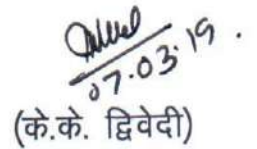 07.03.19.
(के.के. द्विवेदी)